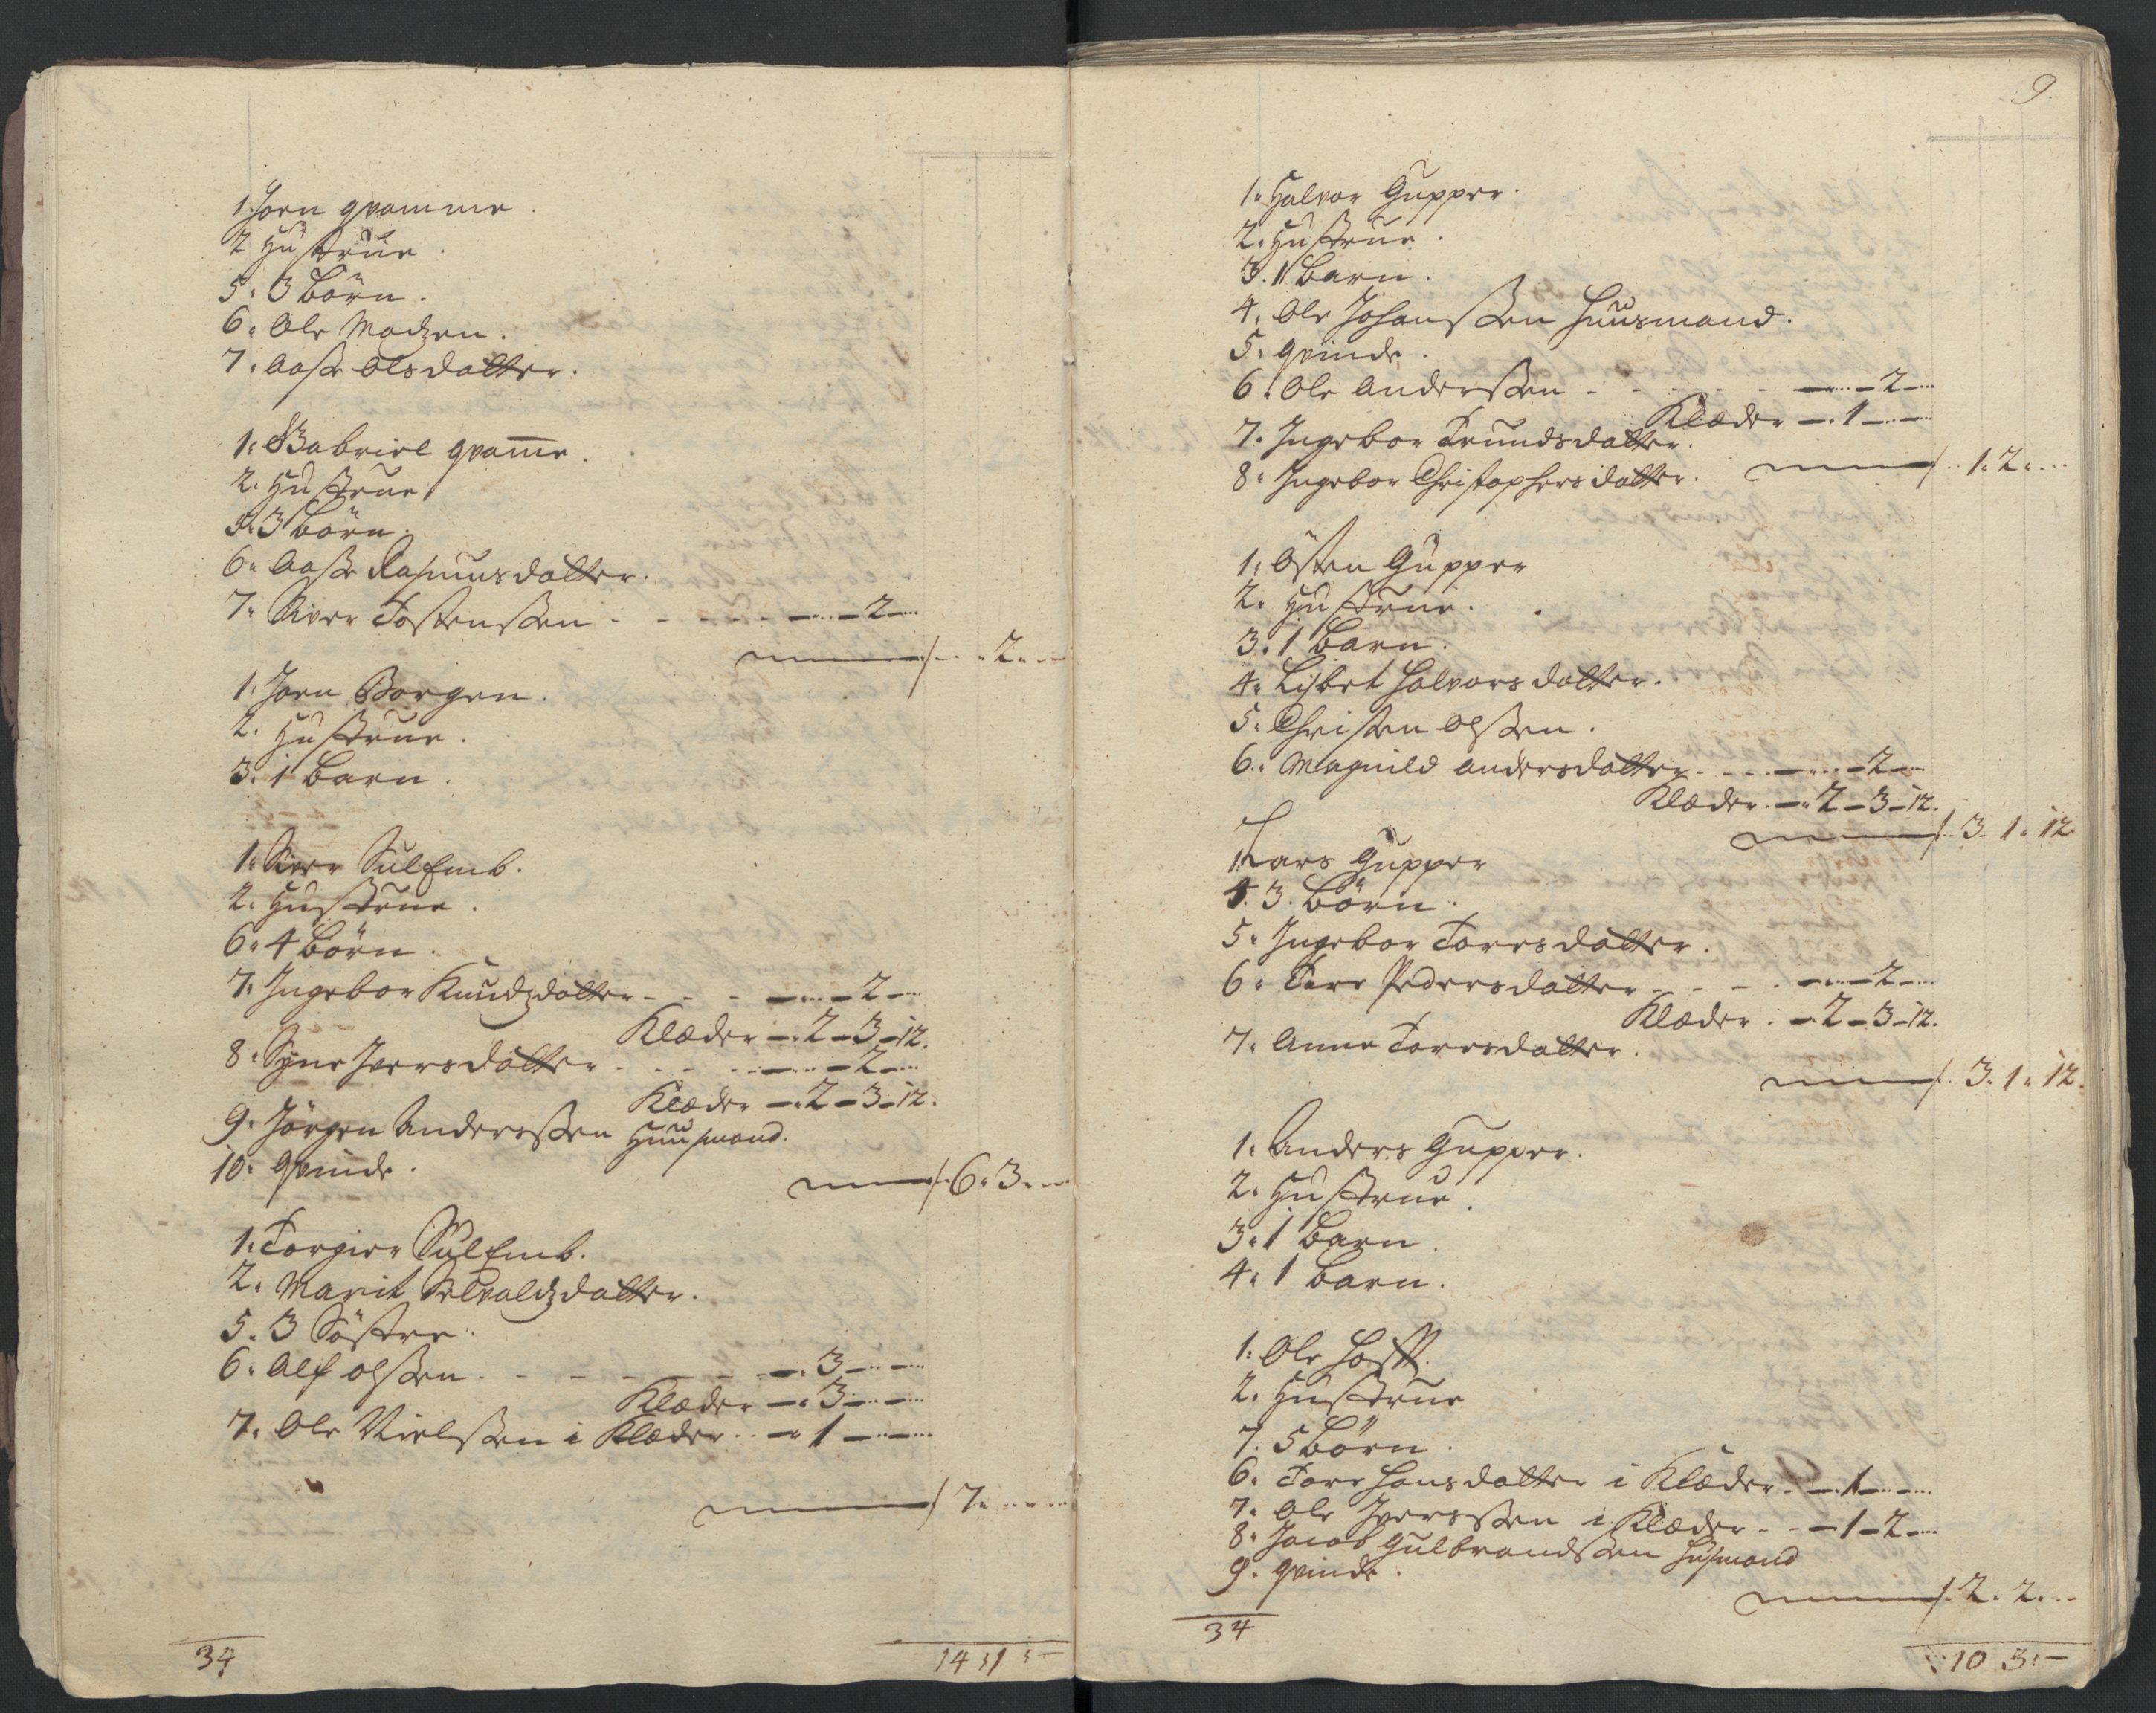 1. Joen qvamme.
2 Hustrue.
5. 3 børn.
6. Ole Madzen.
7. Aase Olsdatter.
1. Gabriel qvame.
2. Hustrue
5. 3 børn.
6. Aase Rasmusdatter.
7. Siver Tostenssen - - - - - 2 -
2.
1. Joen Borgen.
2. Hustrue.
3. 1 barn.
1. Siver
2. Hustrue.
6. 4 børn.
7. Ingebor Knudzdatter - - - 2 -
Klæder - 2 - 3 - 12.
8. Syne Iversdatter - - - 2 -
Klæder - 2 - 3 - 12.
9. Jørgen Anderssen Huusmand.
10. qvinde.
6. 3.
1. Torgier
2. Marit datter.
5. 3 Søstre.
6. Alf olssen. - - - - 3 -
Klæder - 3 -
7. Ole Nielssen i Klæder - 1 -
7.
34
14 1 -
9.
1. Halvor Gupper.
2. Hustrue.
3. 1 barn.
4. Ole Johanssen Huusmand.
5. qvinde.
6. Ole Anderssen - - - - 2 -
Klæder - 1 -
7. Ingebor Trundsdatter.
8. Ingebor Christophersdatter.
1. 2.
1. Østen Gupper
2. Hustrue.
3. 1 barn.
4. Lisbet Halvorsdatter.
5. Christen olssen.
6. Magnild andersdatter - - - 2 -
Klæder. - 2 - 3 - 12.
3. 1. 12
1. Lars Gupper
4. 3. børn.
5. Ingebor Torresdatter.
6. Pedersdatter - - - 2 -
Klæder. - 2 - 3 - 12.
7. Anne Torresdatter.
3. 1. 12.
1. Anders Gupper.
2. Hustrue.
3. 1 barn.
4. 1 barn.
1. Ole
2. Hustrue
7. 5 børn.
6. Torre Hansdatter i Klæder - 1 -
7. Ole Iverssen i Klæder - 1 - 2 -
8. Jacob Gulbrandssen Husmand
9. qvinde.
2. 2.
34
10 3 -